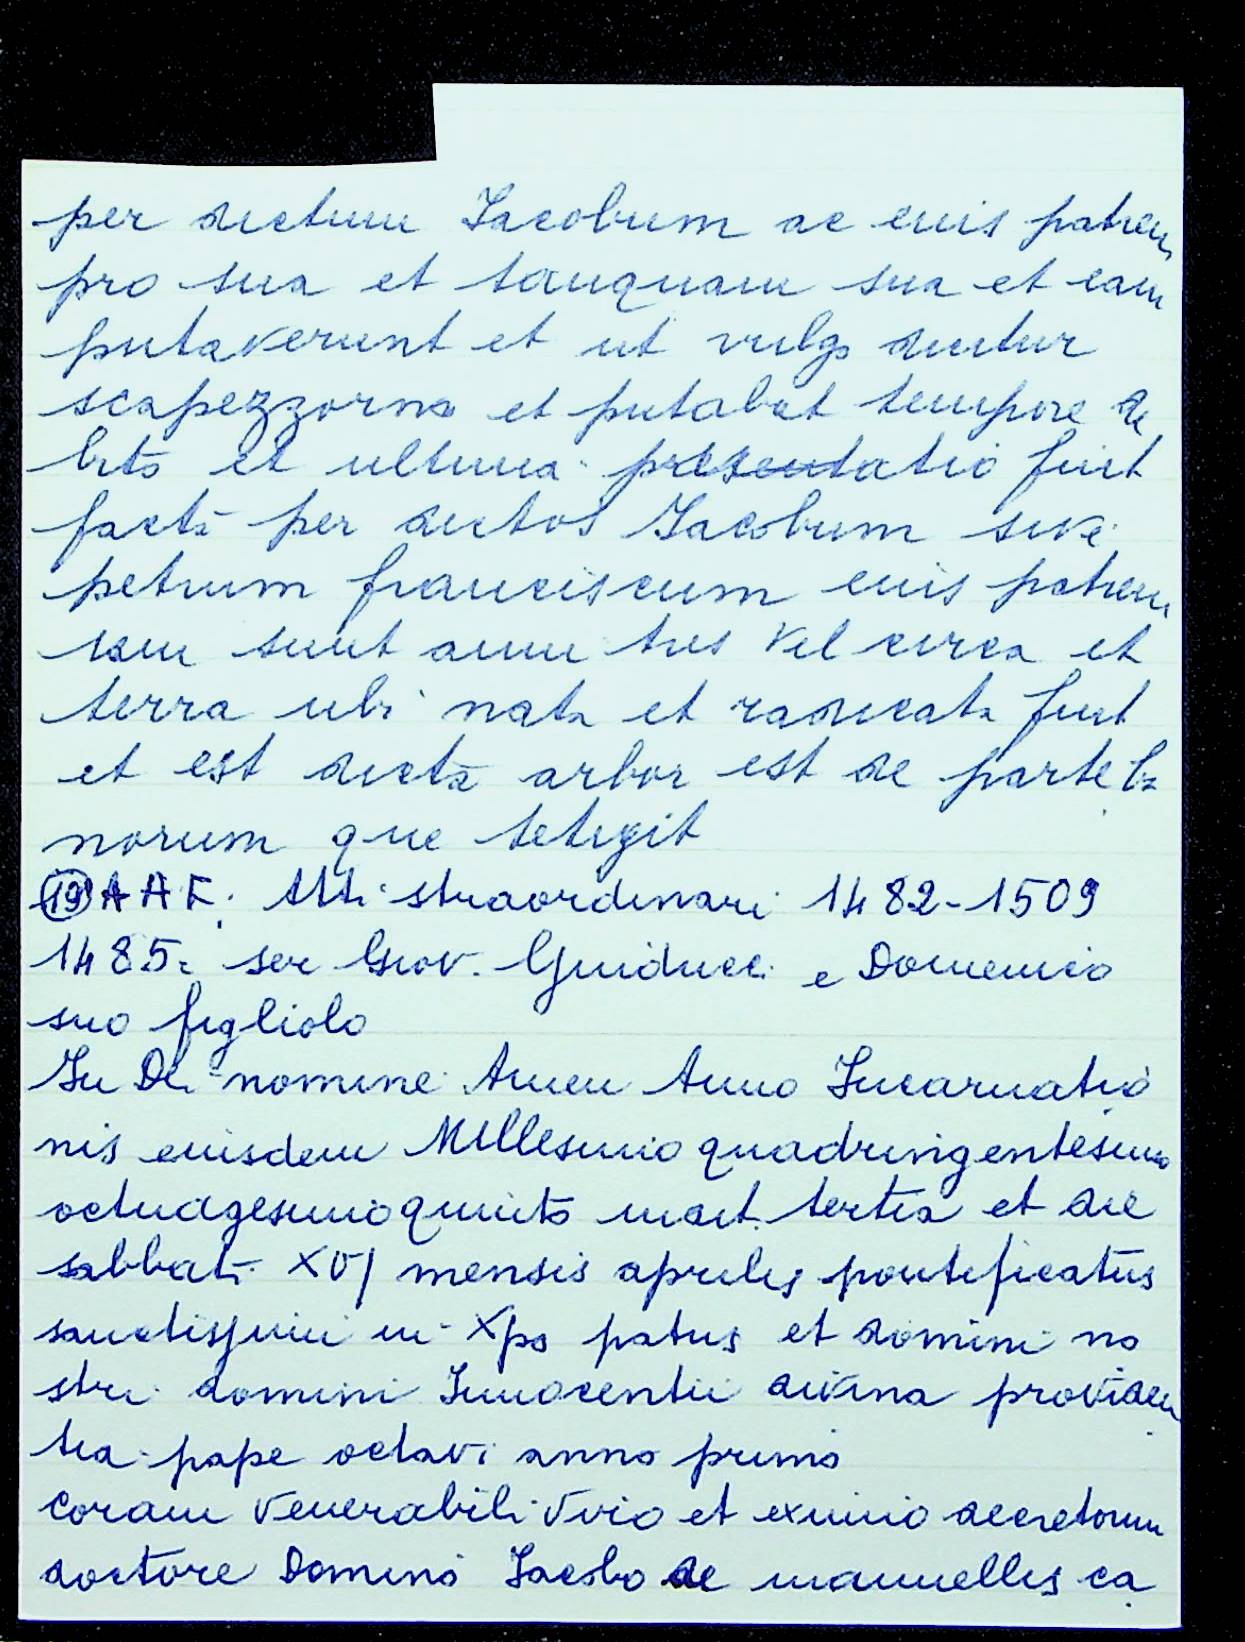 per dictum Iacobum ac eius patrem
pro sua et tanquam sua et eam
putaverunt et ut vulgo dicitur
scapezzorno et putabat tempore de
bito et ultima presentatio fuit
facta per dictos Iacobum sive
petrum franciscum eius patrem
iam sunt anni tres vel circa et
terra ubi nata et radicata fuit
et est dicta arbor est de parte bo
norum que tetigit
(19) A A F. Atti straordinari 1482-1509
1485. ser Giov. Guiducci e Domenico
suo figliolo
In Dei nomine Amen Anno Incarnatio
nis eiusdem Millesimo quadringentesimo
octuagesimo quinto indict. tertia et die
sabbati XVJ mensis aprilis pontificatus
sanctissimi in Xpo patris et domini no
stri domini Innocentii divina providen
tia pape octavi anno primo
coram venerabili viro et eximio decretorum
doctore Domino Iacobo de mannellis ca